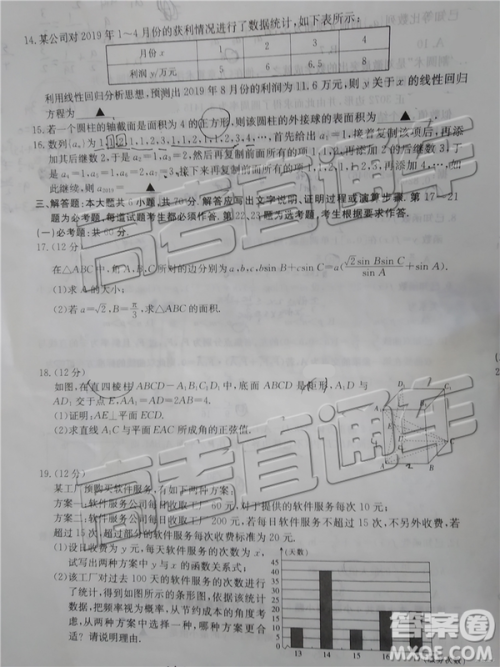 14.某公司对2019年1~4月份的获利情况进行了数据统计,如下表所示:
月份x 1 2 3 4
利润y/万元 5 6 6 8
利用线性回归分析思想,预测出2019年8月份的利润为11.6万元,则y关于x的线性回归
方程为 ▲
15.若一个圆柱的轴截面是面积为4的正方形,则该圆柱的外接球的表面积为 ▲
16.数列{aₙ}为1,1,2,1,1,2,3,1,1,2,1,1,2,3,4,…,首先给出a₁=1,接着复制该项后,再添
加其后继数2,于是a₂=1,a₃=2,然后再复制前面所有的项1,1,2,再添加2的后继数3,于
是a₄=1,a₅=1,a₆=2,a₇=3,接下来再复制前面所有的项1,1,2,1,1,2,3,再添加4,…,如
此继续,则a₂₀₁₉= ▲
三、解答题:本大题共6小题,共70分.解答应写出文字说明、证明过程或演算步骤.第17~21
题为必考题,每道试题考生都必须作答.第22、23题为选考题,考生根据要求作答.
(一)必考题:共60分.
17.(12分)
在△ABC中,角A,B,C所对的边分别为a,b,c,bsin B+csin C=a(√2sin Bsin C/sin A+sin A).
(1)求A的大小;
(2)若a=√2,B=π/3,求△ABC的面积.
18.(12分)
如图,在直四棱柱ABCD-A₁B₁C₁D₁中,底面ABCD是矩形,A₁D与
AD₁交于点E,AA₁=AD=2AB=4.
(1)证明:AE⊥平面ECD.
(2)求直线A₁C与平面EAC所成角的正弦值.
19.(12分)
某工厂预购买软件服务,有如下两种方案:
方案一:软件服务公司每日收取工厂60元,对于提供的软件服务每次10元;
方案二:软件服务公司每日收取工厂200元,若每日软件服务不超过15次,不另外收费,若
超过15次,超过部分的软件服务每次收费标准为20元.
(1)设日收费为y元,每天软件服务的次数为x,
试写出两种方案中y与x的函数关系式;
(2)该工厂对过去100天的软件服务的次数进行
了统计,得到如图所示的条形图,依据该统计
数据,把频率视为概率,从节约成本的角度考
虑,从两个方案中选择一个,哪个方案更合
适?请说明理由.
(天数)
45
40
35
30
25
20
15
10
5
0
13 14 15 16
高考直通车
高考直通车
高考直通车